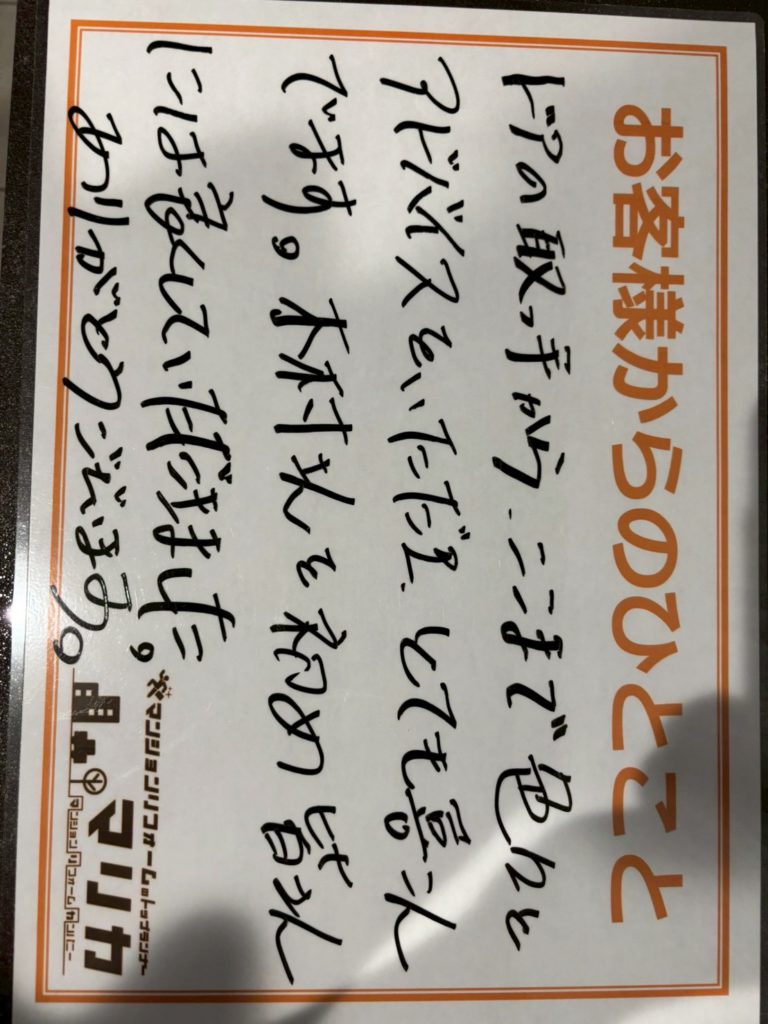 お客様からのひとこと
ドアの取っ手から、ここまで色々と
アドバイスをいただき、とても喜こん
でます。木村さんを初め皆さん
には良くしていただきました。
ありがとうございます。
マンションリフォームのトップランナー
マリカ
マンションリフォームカンパニー